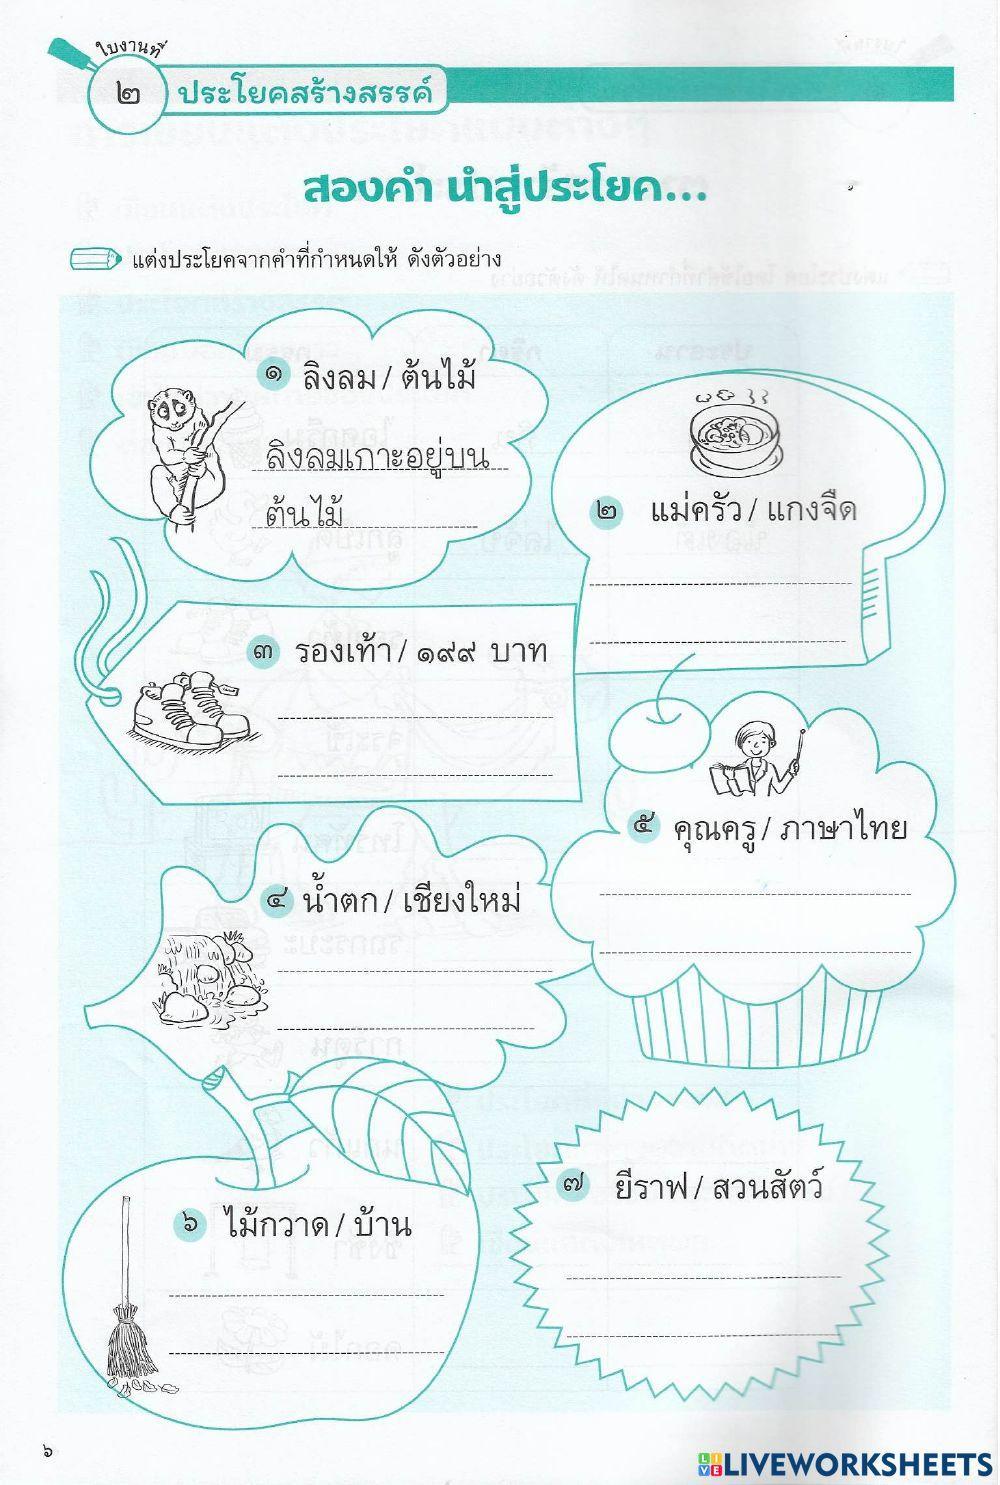 ใบงานที่
๒
ประโยคสร้างสรรค์
สองคำ นำสู่ประโยค...
แต่งประโยคจากคำที่กำหนดให้ ดังตัวอย่าง
๑ ลิงลม / ต้นไม้
ลิงลมเกาะอยู่บน
ต้นไม้
๒ แม่ครัว / แกงจืด
๓ รองเท้า / ๑๙๙ บาท
๔ น้ำตก / เชียงใหม่
๕ คุณครู / ภาษาไทย
๖ ไม้กวาด / บ้าน
๗ ยีราฟ / สวนสัตว์
๖
LIVE LIVEWORKSHEETS